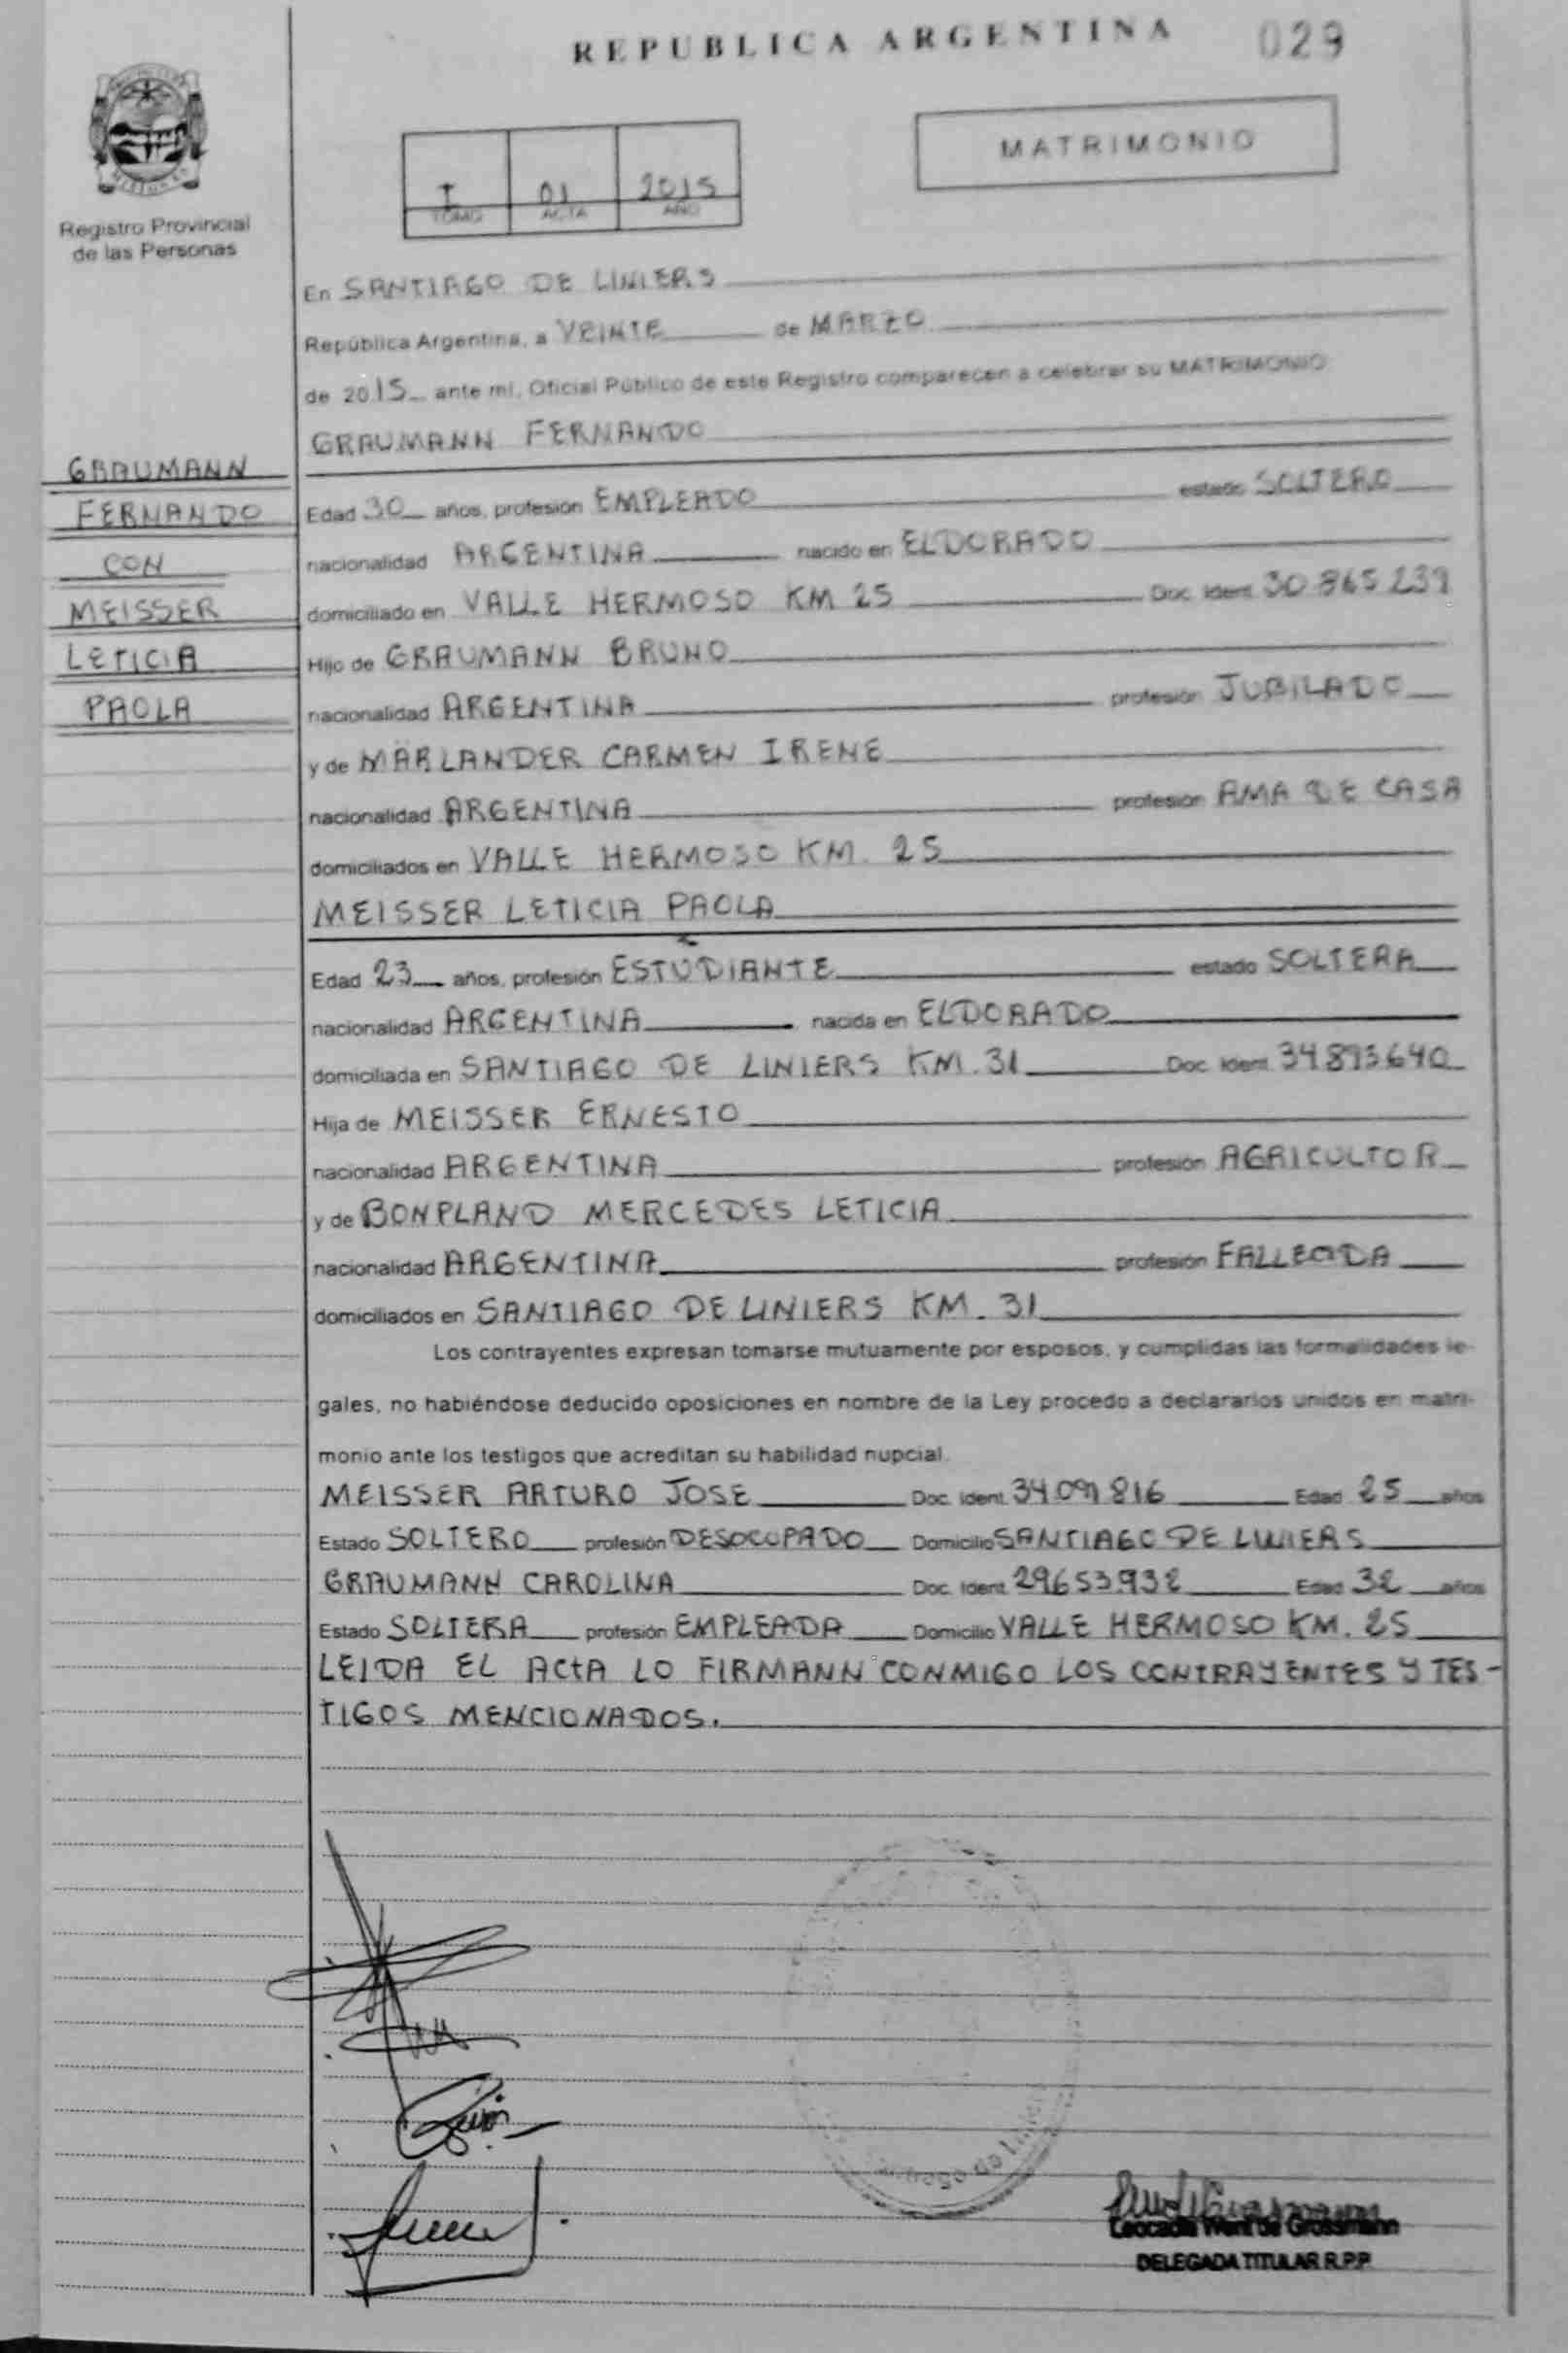 REPUBLICA ARGENTINA 029
MATRIMONIO
I 01 2015
TOMO ACTA AÑO
MISIONES
Registro Provincial
de las Personas
GRAUMANN
FERNANDO
CON
MEISSER
LETICIA
PAOLA
En SANTIAGO DE LINIERS
República Argentina, a VEINTE de MARZO
de 2015 ante mí, Oficial Público de este Registro comparecen a celebrar su MATRIMONIO
GRAUMANN FERNANDO
Edad 30 años, profesión EMPLEADO estado SOLTERO
nacionalidad ARGENTINA nacido en ELDORADO
domiciliado en VALLE HERMOSO KM 25 Doc. Ident. 30 865 239
Hijo de GRAUMANN BRUNO
nacionalidad ARGENTINA profesión JUBILADO
y de MÄRLANDER CARMEN IRENE
nacionalidad ARGENTINA profesión AMA DE CASA
domiciliados en VALLE HERMOSO KM. 25
MEISSER LETICIA PAOLA
Edad 23 años, profesión ESTUDIANTE estado SOLTERA
nacionalidad ARGENTINA nacida en ELDORADO
domiciliada en SANTIAGO DE LINIERS KM. 31 Doc. Ident. 34893640
Hija de MEISSER ERNESTO
nacionalidad ARGENTINA profesión AGRICULTOR
y de BONPLAND MERCEDES LETICIA
nacionalidad ARGENTINA profesión FALLECIDA
domiciliados en SANTIAGO DE LINIERS KM. 31
Los contrayentes expresan tomarse mutuamente por esposos, y cumplidas las formalidades le-
gales, no habiéndose deducido oposiciones en nombre de la Ley procedo a declararlos unidos en matri-
monio ante los testigos que acreditan su habilidad nupcial.
MEISSER ARTURO JOSE Doc. Ident. Edad 25 años
Estado SOLTERO profesión DESOCUPADO Domicilio SANTIAGO DE LINIERS
GRAUMANN CAROLINA Doc. Ident. 29653932 Edad 32 años
Estado SOLTERA profesión EMPLEADA Domicilio VALLE HERMOSO KM. 25
LEIDA EL ACTA LO FIRMANN CONMIGO LOS CONTRAYENTES Y TES-
TIGOS MENCIONADOS.
Leocadia Went de Grossmann
DELEGADA TITULAR R.P.P.